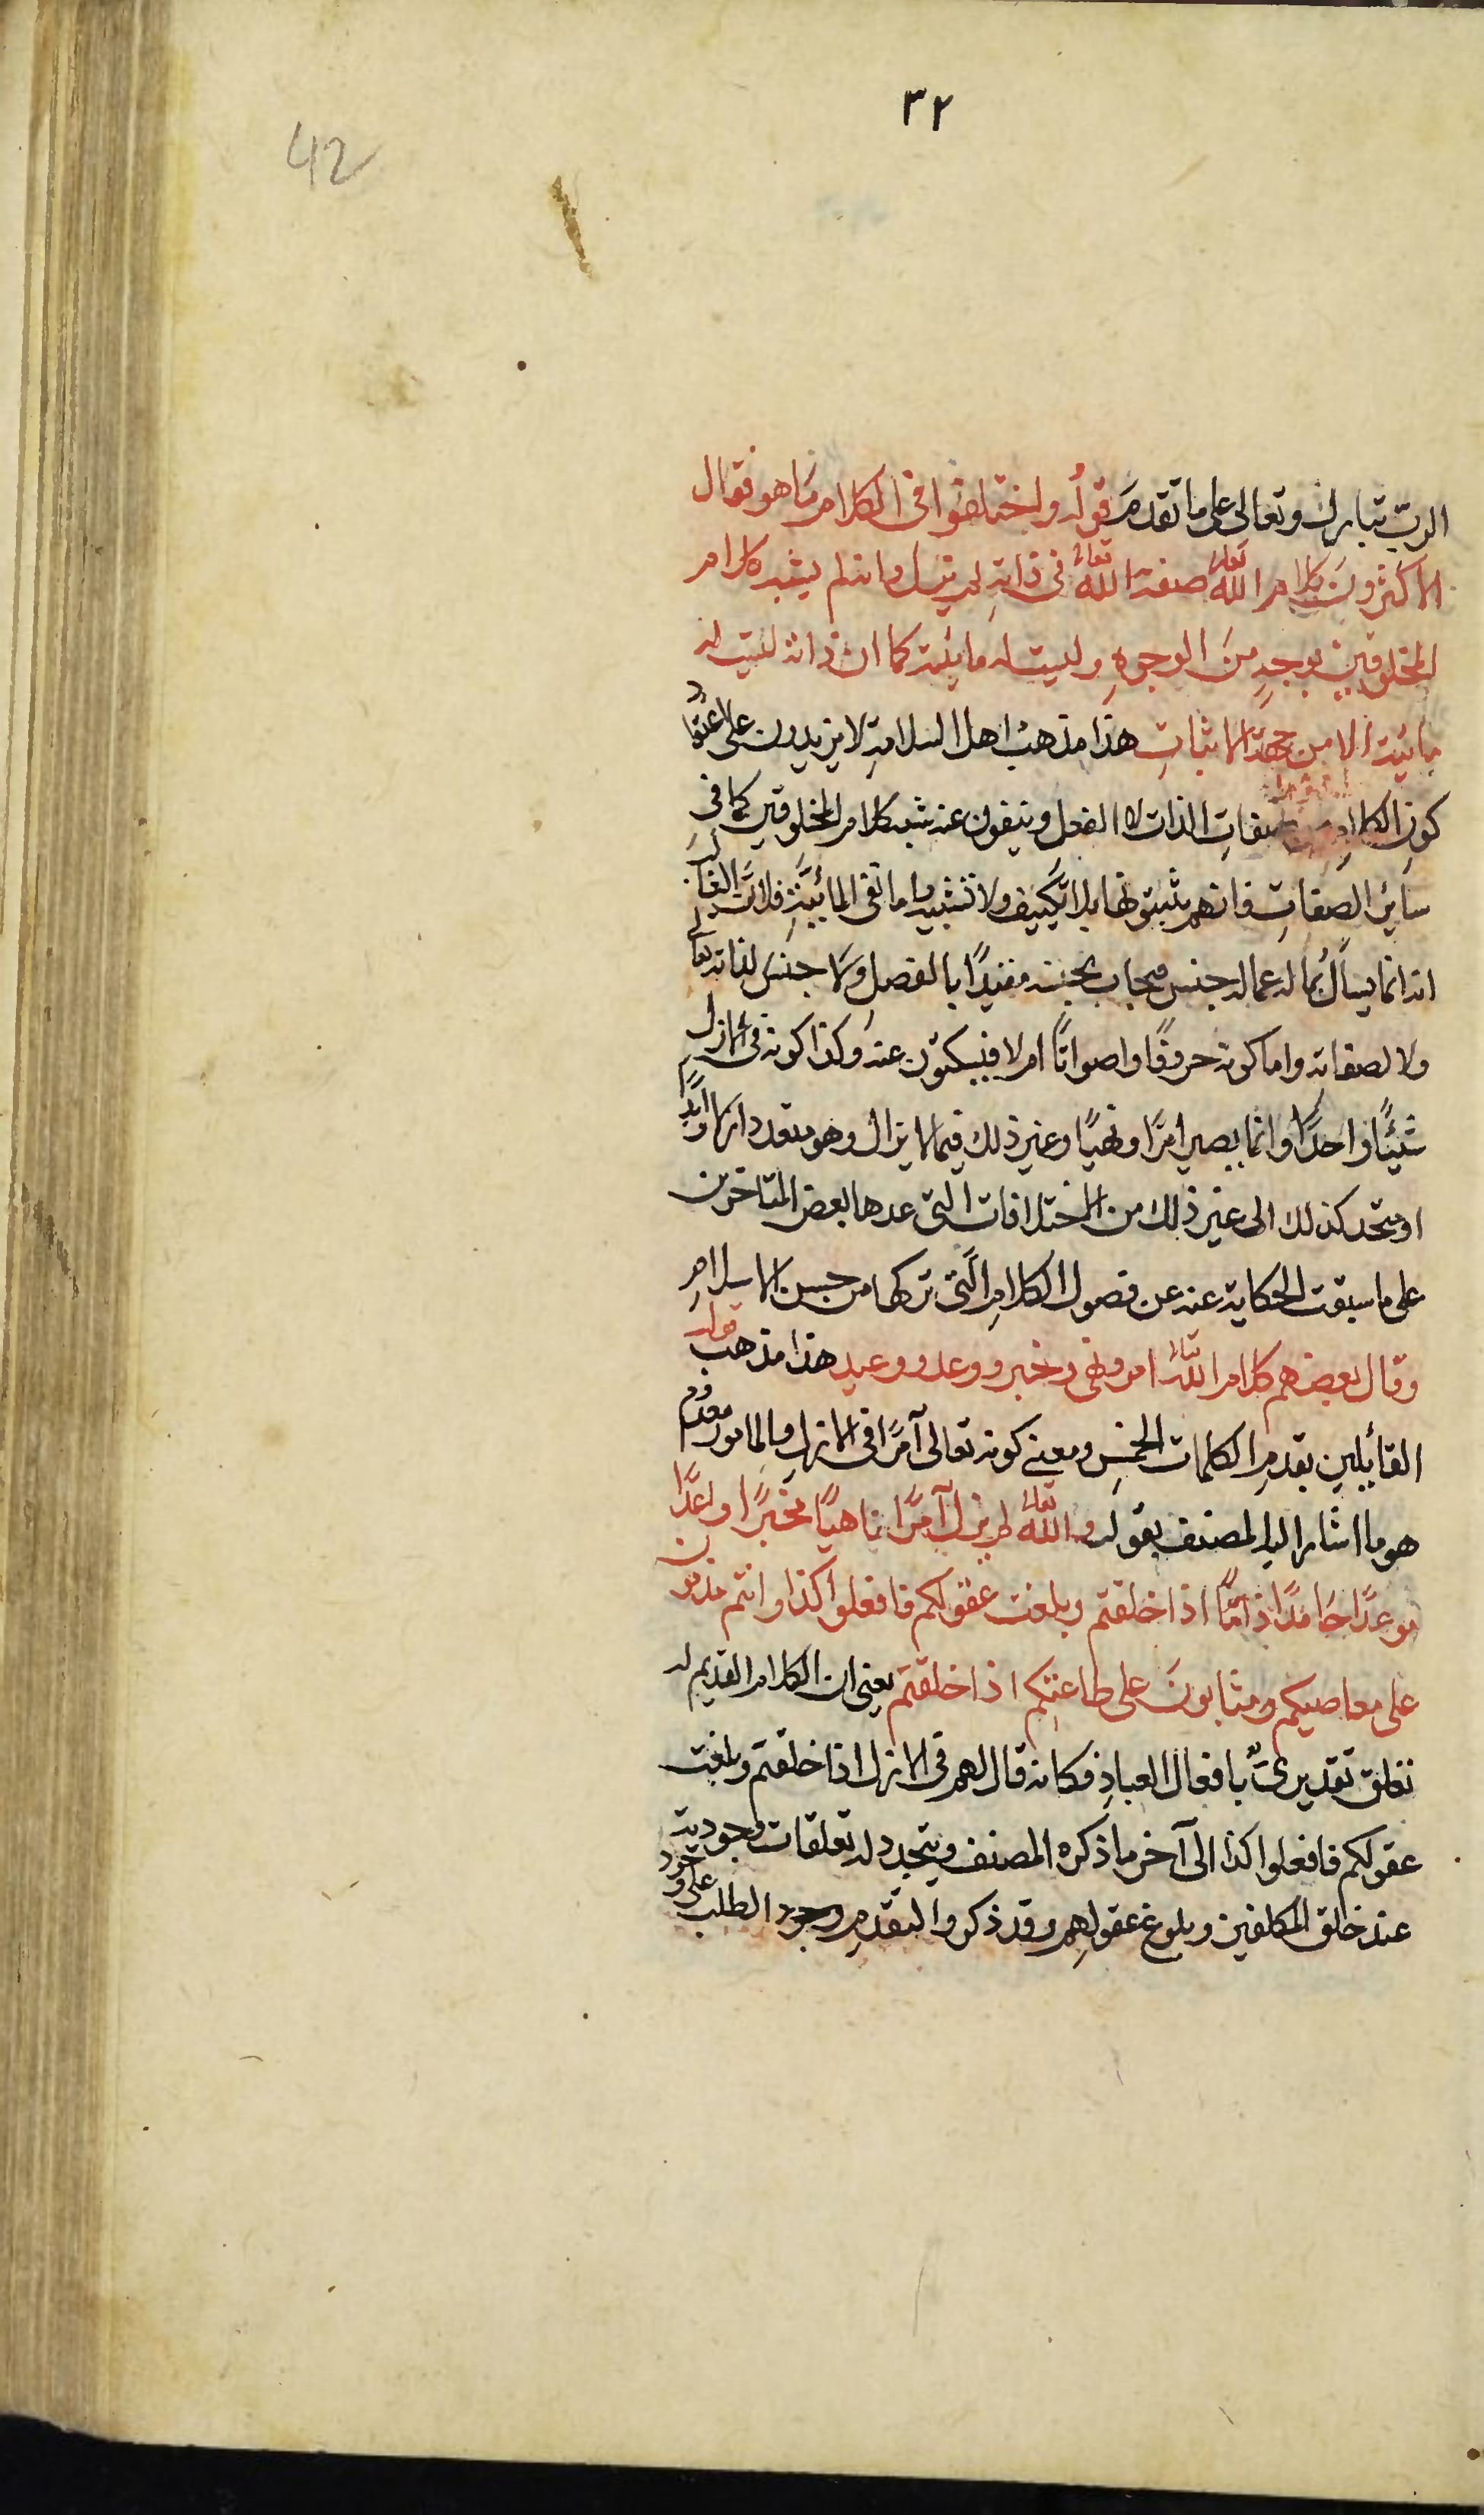 ٣٢
42
الرب تبارك وتعالى على ما تقدمَ قولُه واختلفوا فى الكلام مَا هو فقال
الاكثرون كلام الله تعالى صفة الله تعالى فى ذاتِه لم يزل وانه لم يشبه كلام
المخلوقين بوجهٍ منَ الوجوهِ وليست له مائية كما ان ذاته ليست لها
مائية الا من جهة الاثباتِ هذا مذهب اهل السلامةِ لا يزيدون على اعتقاد
كونِ الكلامِ من صفاتِ الذات لا الفعل وينفون عنه شبه كلام المخلوقين كما فى
سائرِ الصفاتِ فانهم يثبتونها بلا تكييف ولا تشبيه واما نفى المائيَّةِ فلانَّ الغالب
انه انما يسألُ بما له عما له جنس فيجاب بجنسه مقيدًا بالفصلِ ولا جنس لذاته تعالى
ولا لصفاته واما كونه حروفًا واصواتًا ام لا فيسكتون عنه وكذا كونه فى الازل
شيئًا واحدًا وانما يصير امرًا ونهيًا وغير ذلك فيما لا يزال وهو متعدد ازلًا وابدًا
او متحد كذلك الى غير ذلك من الاختلافات التى عدها بعض المتاخرين
على ما سبقت الحكاية عنه عن فصول الكلامِ الَّتى تركها من حسن الاسلامِ
وقال بعضهم كلام الله تعالى امر ونهى وخبر ووعد ووعيد قوله هذا مذهب
القائلين بقدمِ الكلمات الخمسِ ومعنى كونه تعالى آمرًا فى الازلِ والمامور معدوم
هو ما اشار اليه المصنف بقوله والله تعالى لم يزل آمرًا ناهيًا مخبرًا واعدًا
موعدًا حَامدًا ذامًّا اذا خلقتم وبلغت عقولكم فافعلوا كذا وانتم مذمومون
على معاصيكم ومثابونَ على طاعتكم اذا خلقتم يعنى ان الكلام القديم له
تعلق تقديرىٌّ بافعال العبادِ فكانه قال لهم فى الازل اذا خلقتم وبلغت
عقولكم فافعلوا كذا الى آخر ما ذكره المصنف ويتجدد له تعلقات وجودية
عند خلق المكلفين وبلوغ عقولهِم وقد ذكروا لتقدمِ وجود الطلب على وجود